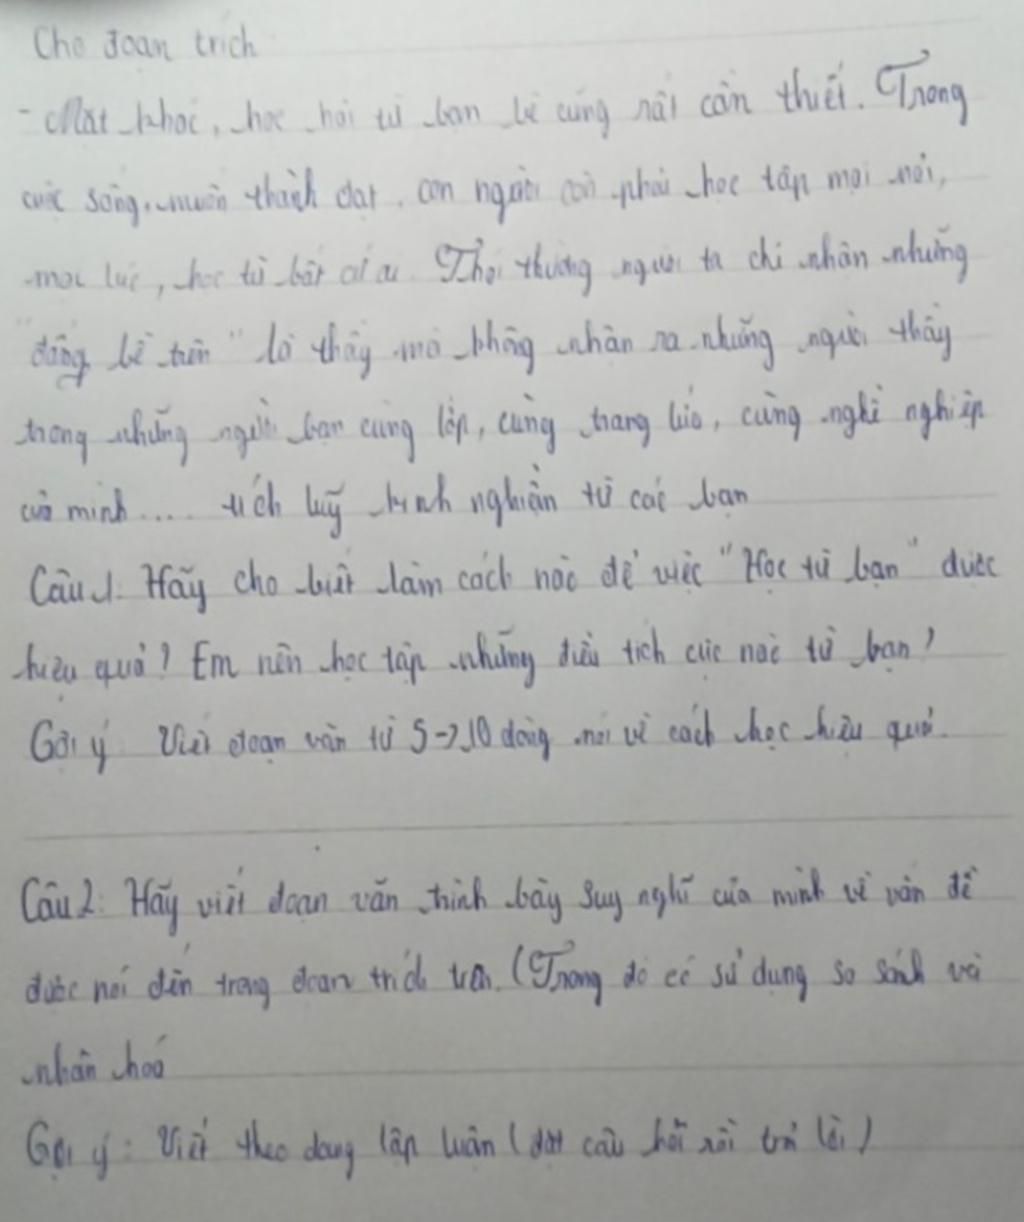 Cho đoạn trích
- Mặt khác, học hỏi từ bạn bè cũng rất cần thiết. Trong
cuộc sống, muốn thành đạt, con người cần phải học tập mọi nơi,
mọi lúc, học từ bất cứ ai. Thói thường người ta chỉ nhận những
"đấng bề trên" là thầy mà không nhận ra những người thầy
trong những người bạn cùng lớp, cùng trang lứa, cùng nghề nghiệp
của mình.... tích luỹ kinh nghiện từ các bạn
Câu 1: Hãy cho biết làm cách nào để việc "Học từ bạn" được
hiệu quả? Em nên học tập những điều tích cực nào từ bạn?
Gợi ý Viết đoạn văn từ 5->10 dòng nói về cách học hiệu quả.
Câu 2: Hãy viết đoạn văn trình bày suy nghĩ của mình về vấn đề
được nói đến trong đoạn trích trên. (Trong đó có sử dụng so sánh và
nhân hoá
Gợi ý: Viết theo dạng lập luận (đặt câu hỏi rồi trả lời)